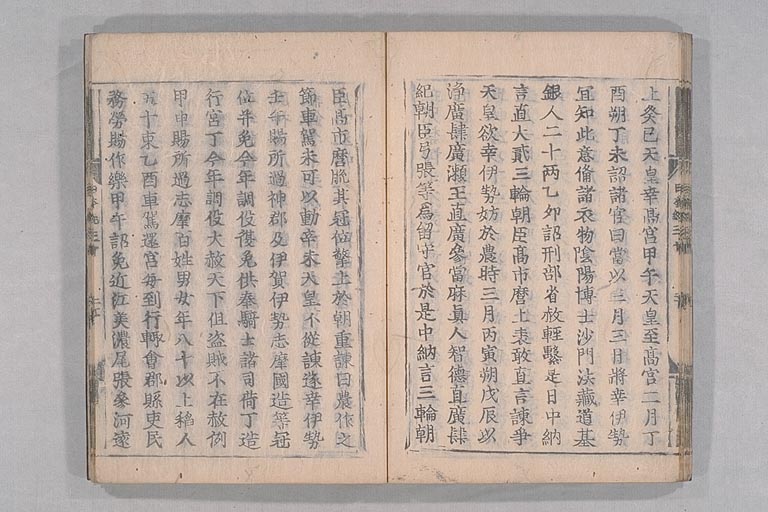 上癸巳天皇幸高宮甲午天皇至高宮二月丁
酉朔丁未詔諸官曰當以三月三日將幸伊勢
宜知此意偹諸衣物陰陽博士沙門法藏道基
銀人二十两乙夘詔刑部省赦輕繫是日中納
言直大貳三輪朝臣高市麿上表敢直言諫争
天皇欲幸伊勢妨於農時三月丙寅朔戊辰以
浄廣肆廣瀬王直廣参當麻真人智徳直廣肆
紀朝臣弓張等爲留守官於是中納言三輪朝
臣高市麿脱其冠位擎上於朝重諫曰農作之
節車駕未可以動辛未天皇不從諫遂幸伊勢
壬午賜所過神郡及伊賀伊勢志摩國造等冠
位并免今年調役復免供奉騎士諸司荷丁造
行宮丁今年調役大赦天下但盗賊不在赦例
甲申賜所過志摩百姓男女年八十以上稲人
五十束乙酉車駕還宮毎到行輙會郡縣吏民
務勞賜作樂甲午詔免近江美濃尾張参河遠